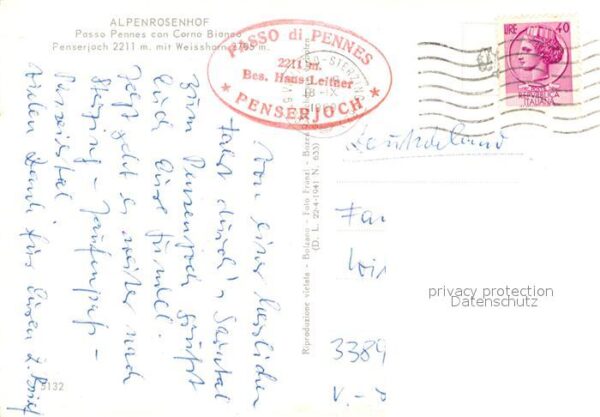 ALPENROSENHOF
Passo Pennes con Corno Bianco
Penserjoch 2211 m. mit Weisshorn 2705 m.
PASSO di PENNES
2211 m.
Bes. Hans Leitner
PENSERJOCH
LIRE 40
REPUBBLICA
ITALIANA
Von einer herrlichen
Fahrt durch's Sarntal
zum Penserjoch grüßt
Euch Eure
Jetzt geht es weiter nach
Sterzing - Jaufenpaß -
Passeiertal.
Vielen Dank für Euren l. Brief
5132
Riproduzione vietata - Bolzano - Foto Fränzl - Bozen
(D. L. 22-4-1941 N. 633)
Deutschland
Fa
3389
V. -
privacy protection
Datenschutz